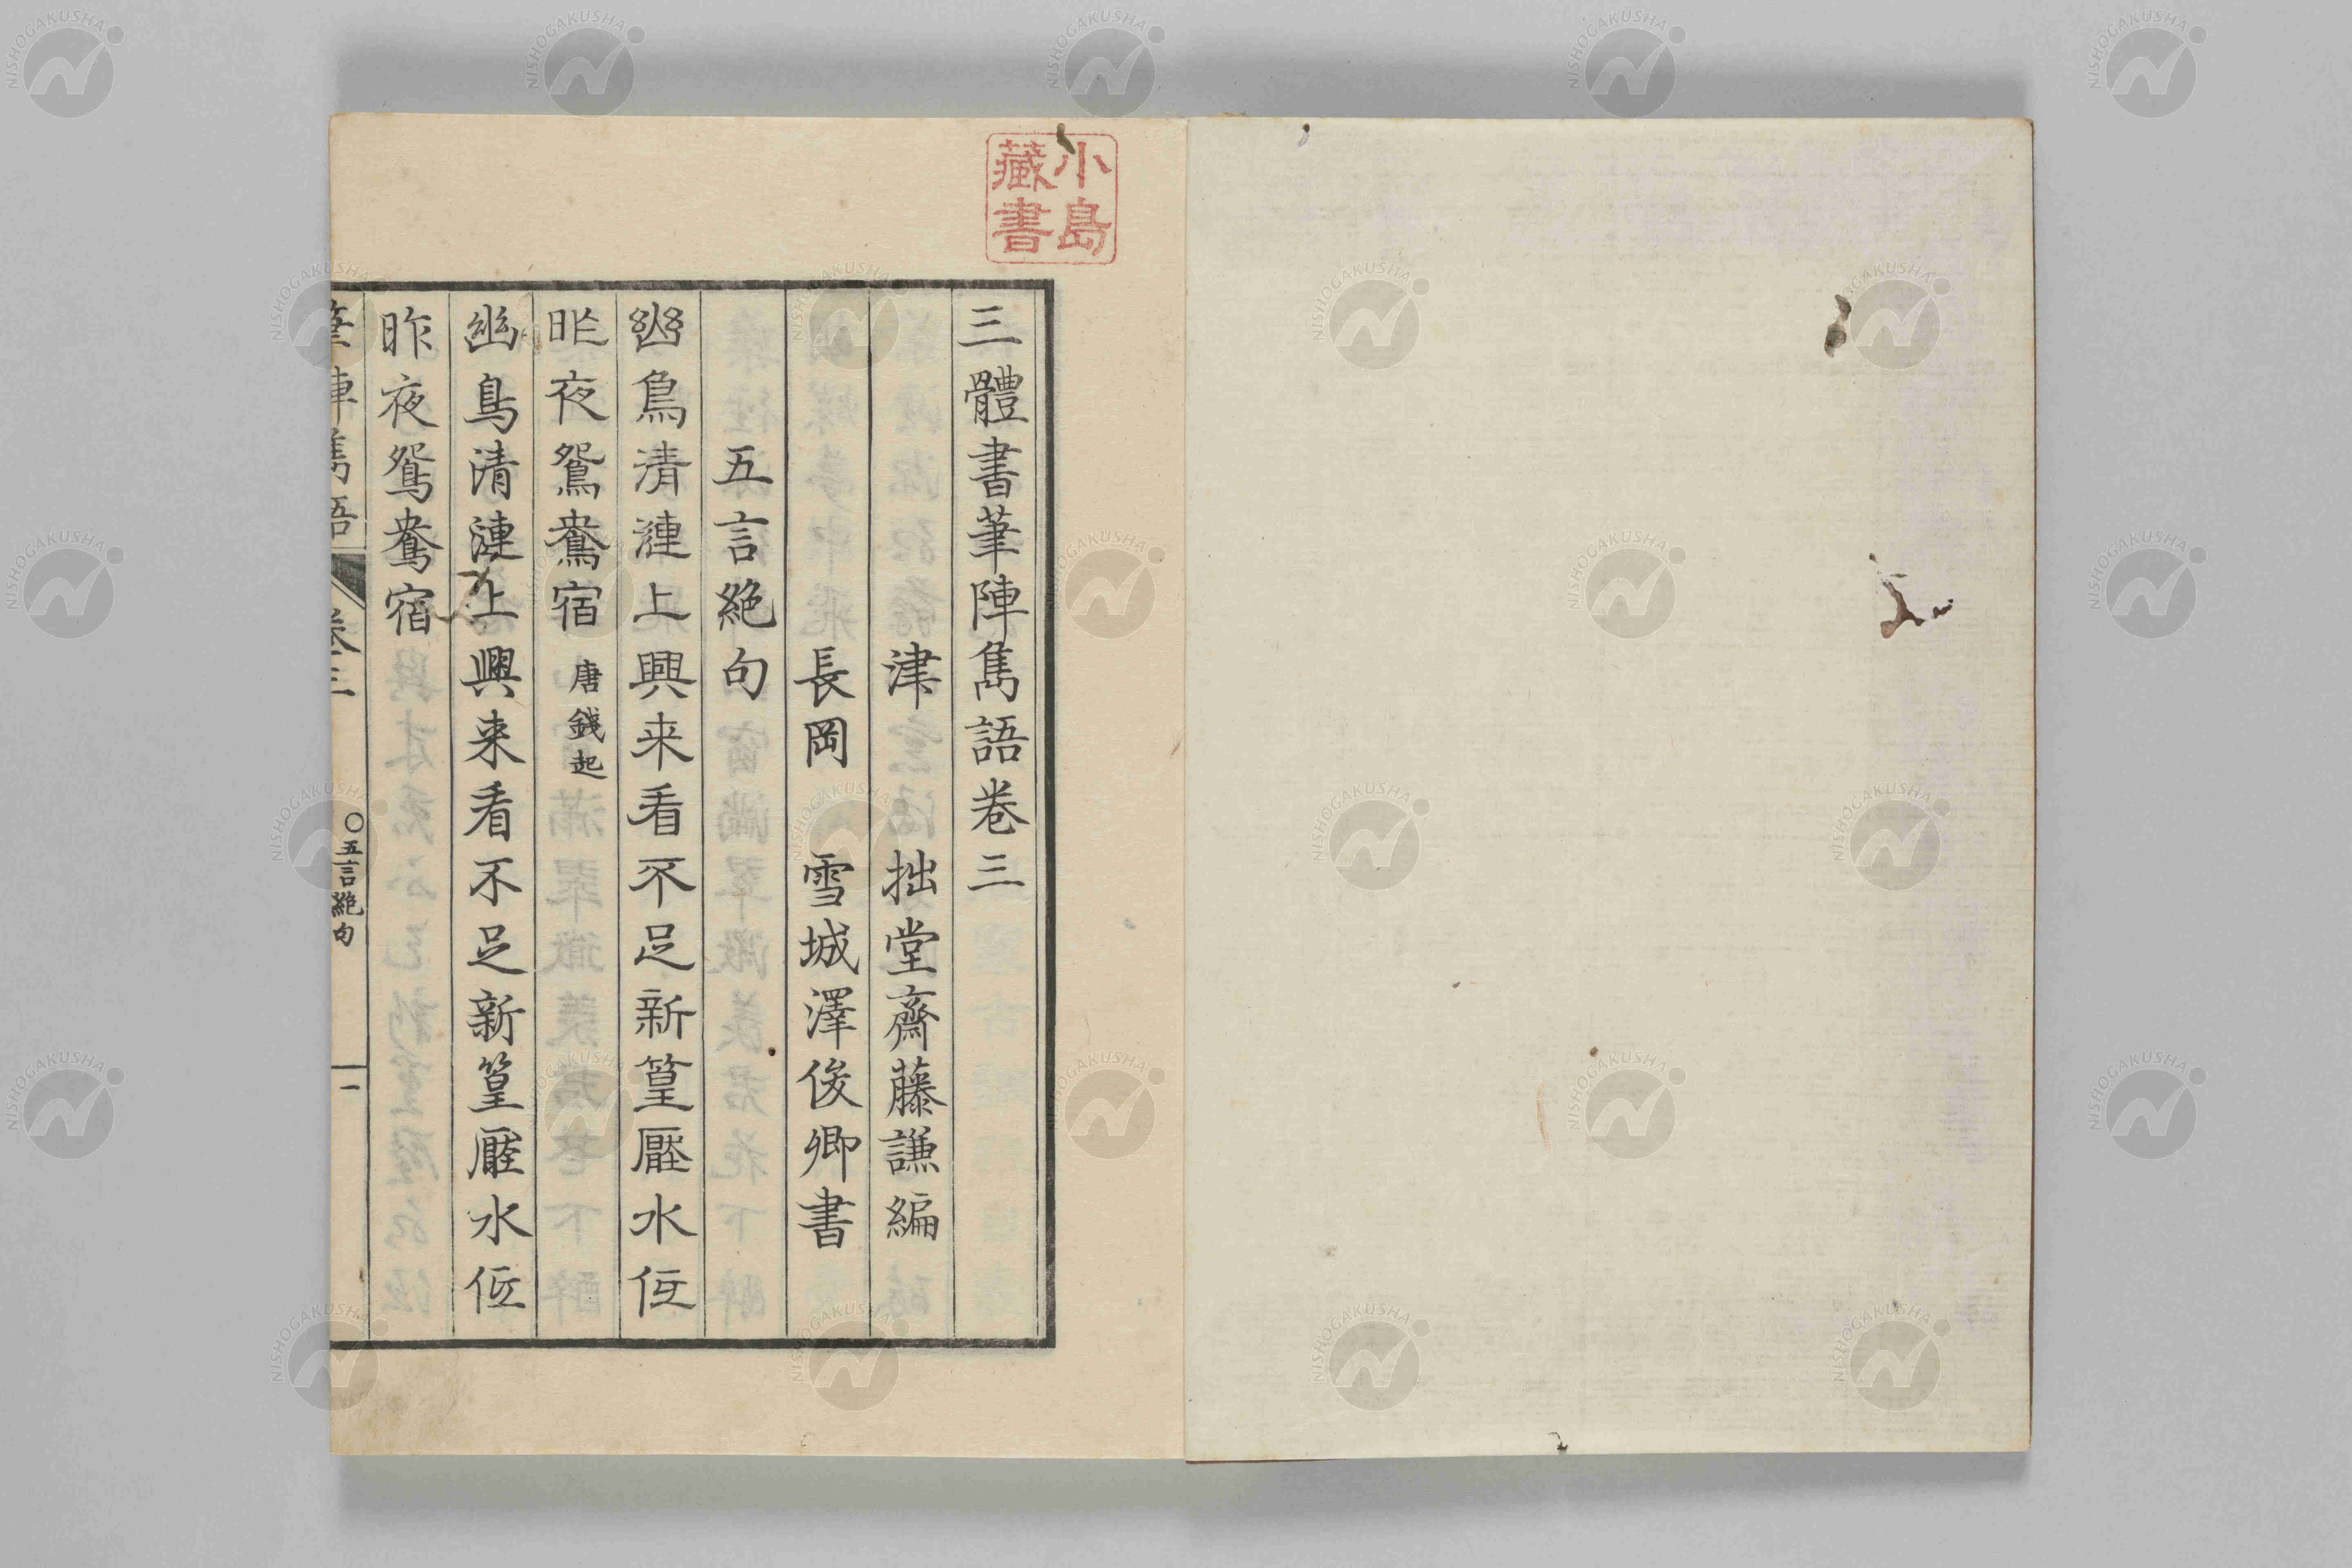 小島
藏書
三體書筆陣雋語卷三
津 拙堂齋藤謙編
長岡 雪城澤俊卿書
五言絶句
幽鳥清漣上興来看不足新篁壓水低
昨夜鴛鴦宿 唐錢起
幽鳥清漣上興来看不足新篁壓水低
昨夜鴛鴦宿
筆陣雋語 卷三 〇五言絶句 一
NISHOGAKUSHA